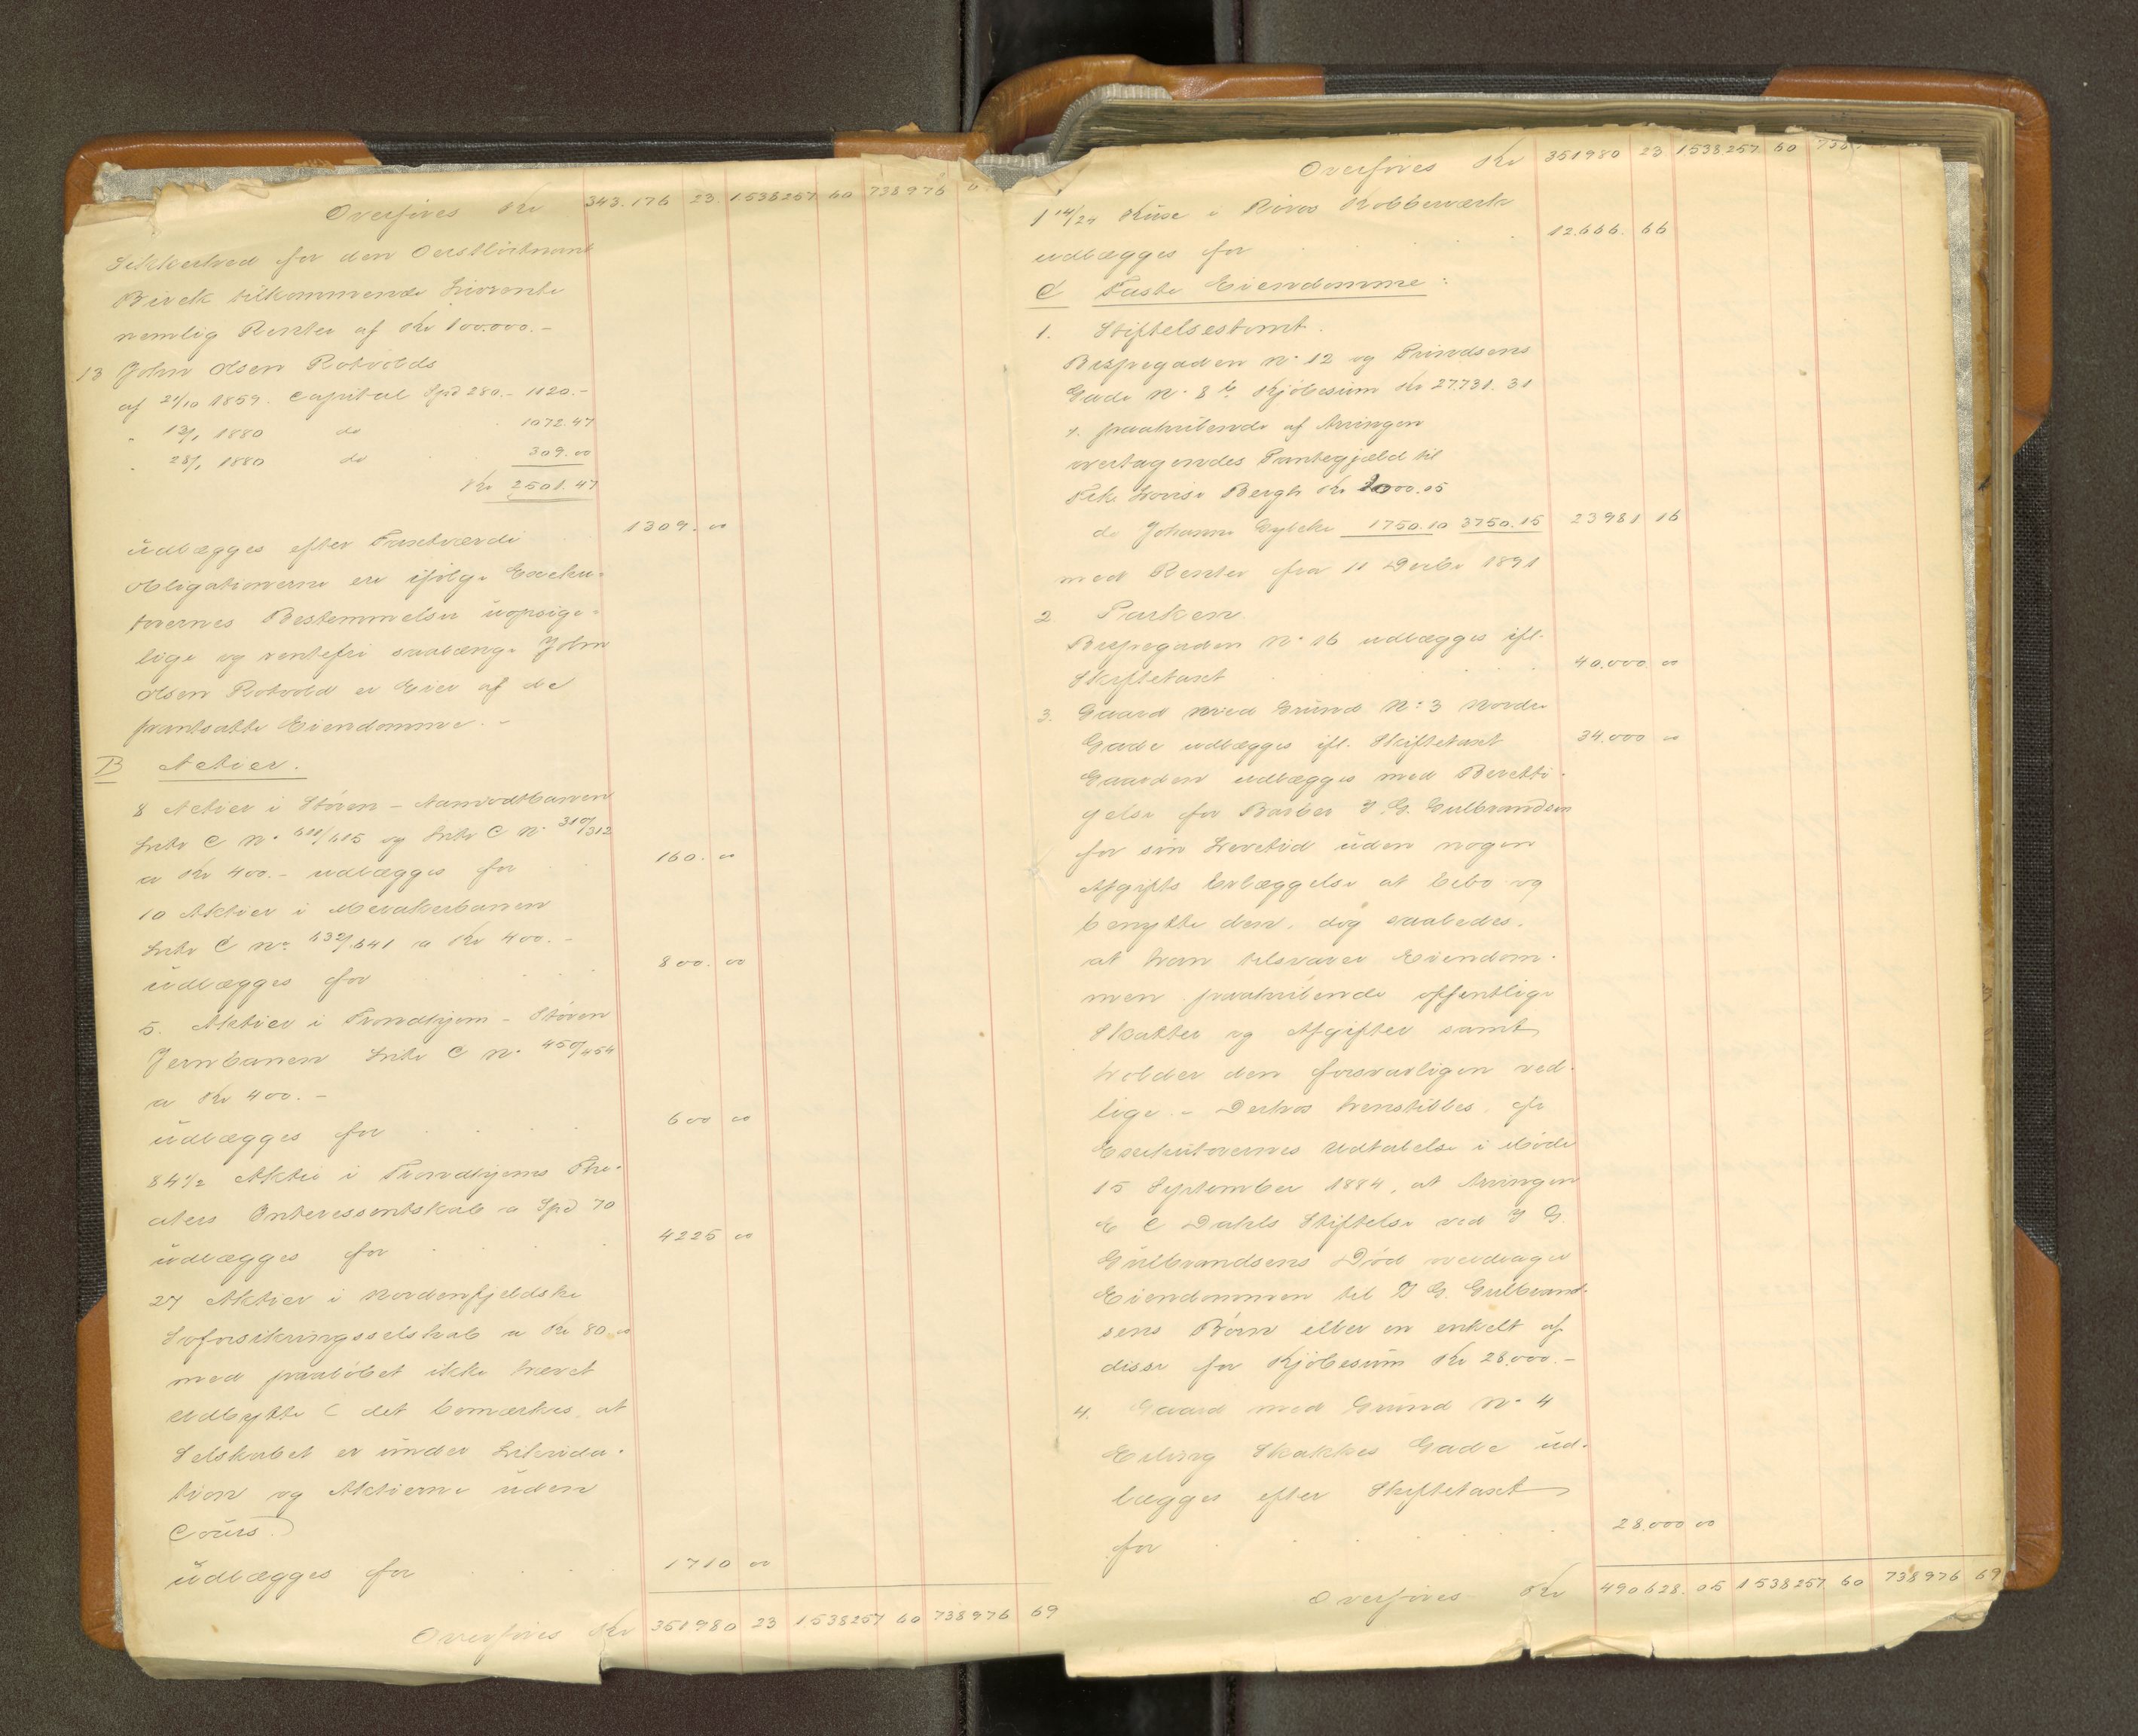 Overføres Kr 343.176 23 1538257 60 738976 6
Sikkerhed for den Oberstløitnant
Birch tilkommende Livrente
nemlig Renter af Kr 100.000.-
13 John Olsen Rotvolds
af 21/10 1859. Capital Spd 280.- 1120.-
" 13/1 1880 do 1072.47
" 28/1 1880 do 309.00
Kr 2501.47
udlægges efter Pantværdi 1309. 00
Obligationerne ere ifølge Execu-
torernes Bestemmelser uopsige-
lige og rentefri saalænge John
Olsen Rotvold er Eier af de
pantsatte Eiendomme. -
B Actier.
8 Actier i Støren - Aamodtbanen
Littr C No 611/615 og Littr C No 310/312
a Kr 400.- udlægges for 160. 00
10 Aktier i Merakerbanen
Littr C No 632/641 a Kr 400. -
udlægges for 800. 00
5. Aktier i Trondhjem - Støren
Jernbanen Littr C No 450/454
a Kr 400. -
udlægges for 600 00
84 1/2 Aktie i Trondhjems The-
aters Interessentskab a Spd 70
udlægges for 4225 00
27 Aktier i Nordenfjeldske
Søforsikringsselskab a Kr 80.00
med paaløbet ikke hævet
Udbytte ( det bemærkes, at
Selskabet er under Likvida-
tion og Aktierne uden
Cours.)
udlægges for 1710 00
Overføres Kr 351980 23 1538257 60 738976 69
Overføres Kr 351980 23 1538257 60 738
1 14/24 Kuxe i Røros Kobberværk
udlægges for 12.666. 66
C Faste Eiendomme:
1. Stiftelsestomt.
Bispegaden No 12 og Prindsens
Gade No 8 b Kjøbesum Kr 27.731.31
÷ paahvilende af Arvingen
overtagendes Pantegjæld til
Frk. Lovise Bergh Kr 2000.05
do Johanne Lybcke 1750.10 3750.15 23981 16
med Renter fra 11 Decbr 1891
2 Parken.
Bispegaden No 16 udlægges ifl.
Skiftetaxt 40.000 00
3. Gaard med Grund No 3 Nordre
Gade udlægges ifl. Skiftetaxt 34.000 00
Gaarden udlægges med Beretti-
gelse for Barber J. G. Gulbrandsen
for sin Levetid uden nogen
Afgifts Erlæggelse at bebo og
benytte den, dog saaledes,
at han tilsvarer Eiendom-
men paahvilende offentlige
Skatter og Afgifter samt
holder den forsvarligen ved-
lige. - Derhos henstilles, efr
Exekutorernes Udtalelse i Møde
15 September 1884, at Arvingen
E C Dahls Stiftelse ved J G.
Gulbrandsens Død overdrager
Eiendommen til J G. Gulbrand-
sens Børn eller en enkelt af
disse for Kjøbesum Kr 28.000.-
4. Gaard med Grund No 4
Erling Skakkes Gade ud-
lægges efter Skiftetaxt
for 28.000 00
Overføres Kr 490628.05 1538257 60 738976 69